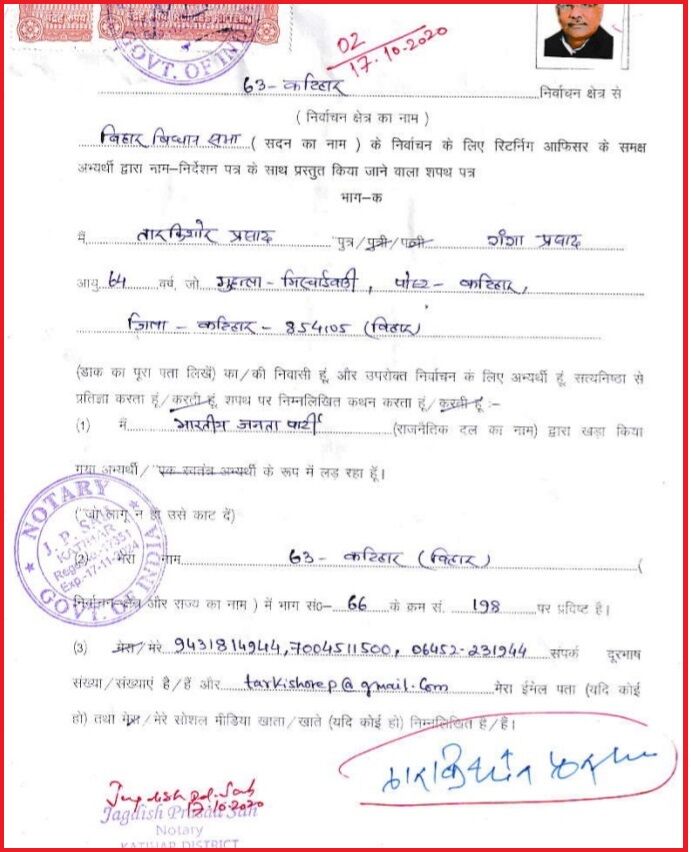 GOVT. OF IND
02
17-10-2020
63- कटिहार निर्वाचन क्षेत्र से
( निर्वाचन क्षेत्र का नाम )
बिहार विधान सभा ( सदन का नाम ) के निर्वाचन के लिए रिटर्निंग आफिसर के समक्ष
अभ्यर्थी द्वारा नाम–निर्देशन पत्र के साथ प्रस्तुत किया जाने वाला शपथ पत्र
भाग-क
मैं तारकिशोर प्रसाद पुत्र/पुत्री/पत्नी गंगा प्रसाद
आयु 64 वर्ष, जो मुहल्ला - पोस्ट - कटिहार,
जिला - कटिहार - 854105 (बिहार)
(डाक का पूरा पता लिखें) का/की निवासी हूं, और उपरोक्त निर्वाचन के लिए अभ्यर्थी हूं, सत्यनिष्ठा से
प्रतिज्ञा करता हूं/करती हूं, शपथ पर निम्नलिखित कथन करता हूं/करती हूं :–
(1) मैं भारतीय जनता पार्टी (राजनैतिक दल का नाम) द्वारा खड़ा किया
गया अभ्यर्थी/ एक स्वतंत्र अभ्यर्थी के रूप में लड़ रहा हूँ।
( जो लागू न हो उसे काट दें)
NOTARY
J. P. SAH
KATIHAR
Exp.-17-11-
GOVT. OF INDIA
(2) मेरा नाम 63- कटिहार (बिहार) (
निर्वाचन क्षेत्र और राज्य का नाम ) में भाग सं०- 66 के क्रम सं. 198 पर प्रविष्ट है।
(3) मेरा/मेरे 9431814944, 7004511500, 06452-231944 संपर्क दूरभाष
संख्या/संख्याएं है/हैं और tarkishorep@gmail.com मेरा ईमेल पता (यदि कोई
हो) तथा मेरा/मेरे सोशल मीडिया खाता/खाते (यदि कोई हो) निम्नलिखित है/हैं।
तारकिशोर प्रसाद
Jagdish Pd. Sah
17.10.2020
Jagdish Prasad Sah
Notary
KATIHAR DISTRICT